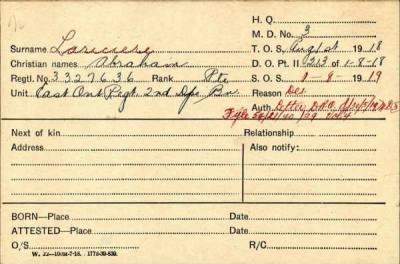 H. Q.
M. D. No. 3
Surname Lariviere
T. O. S. Aug 1st 1918
Christian names Abraham
D. O. Pt. II 213 of 1-8-18
Regtl. No. 3327636 Rank Pte
S. O. S. 1-8-1919
Unit East Ont Regt 2nd Dps Bn
Reason Des
Auth Letter D.R.O.
Next of kin
Relationship
Address
Also notify:
BORN—Place
Date
ATTESTED—Place
Date
O/S
R/C